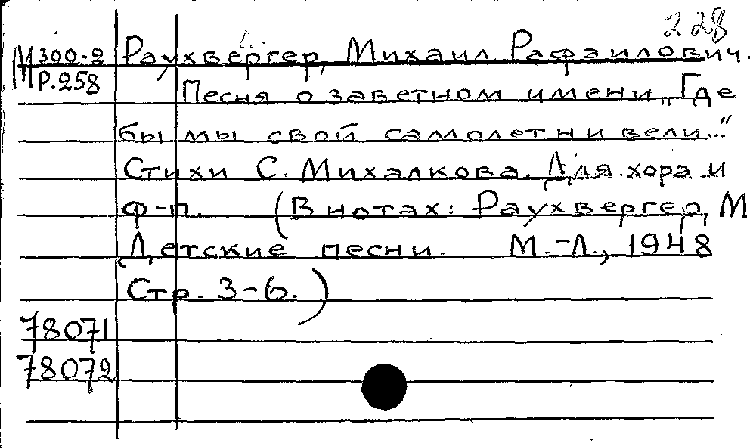 228
М300-2 Раухвергер, Михаил Рафаилович.
Р.258 Песня о заветном имени „Где
бы мы свой самолет ни вели..."
Стихи С. Михалкова. Для хора и
ф-п. (В нотах: Раухвергер, М
Детские песни. М.-Л., 1948
Стр. 3-6.)
78071
78072